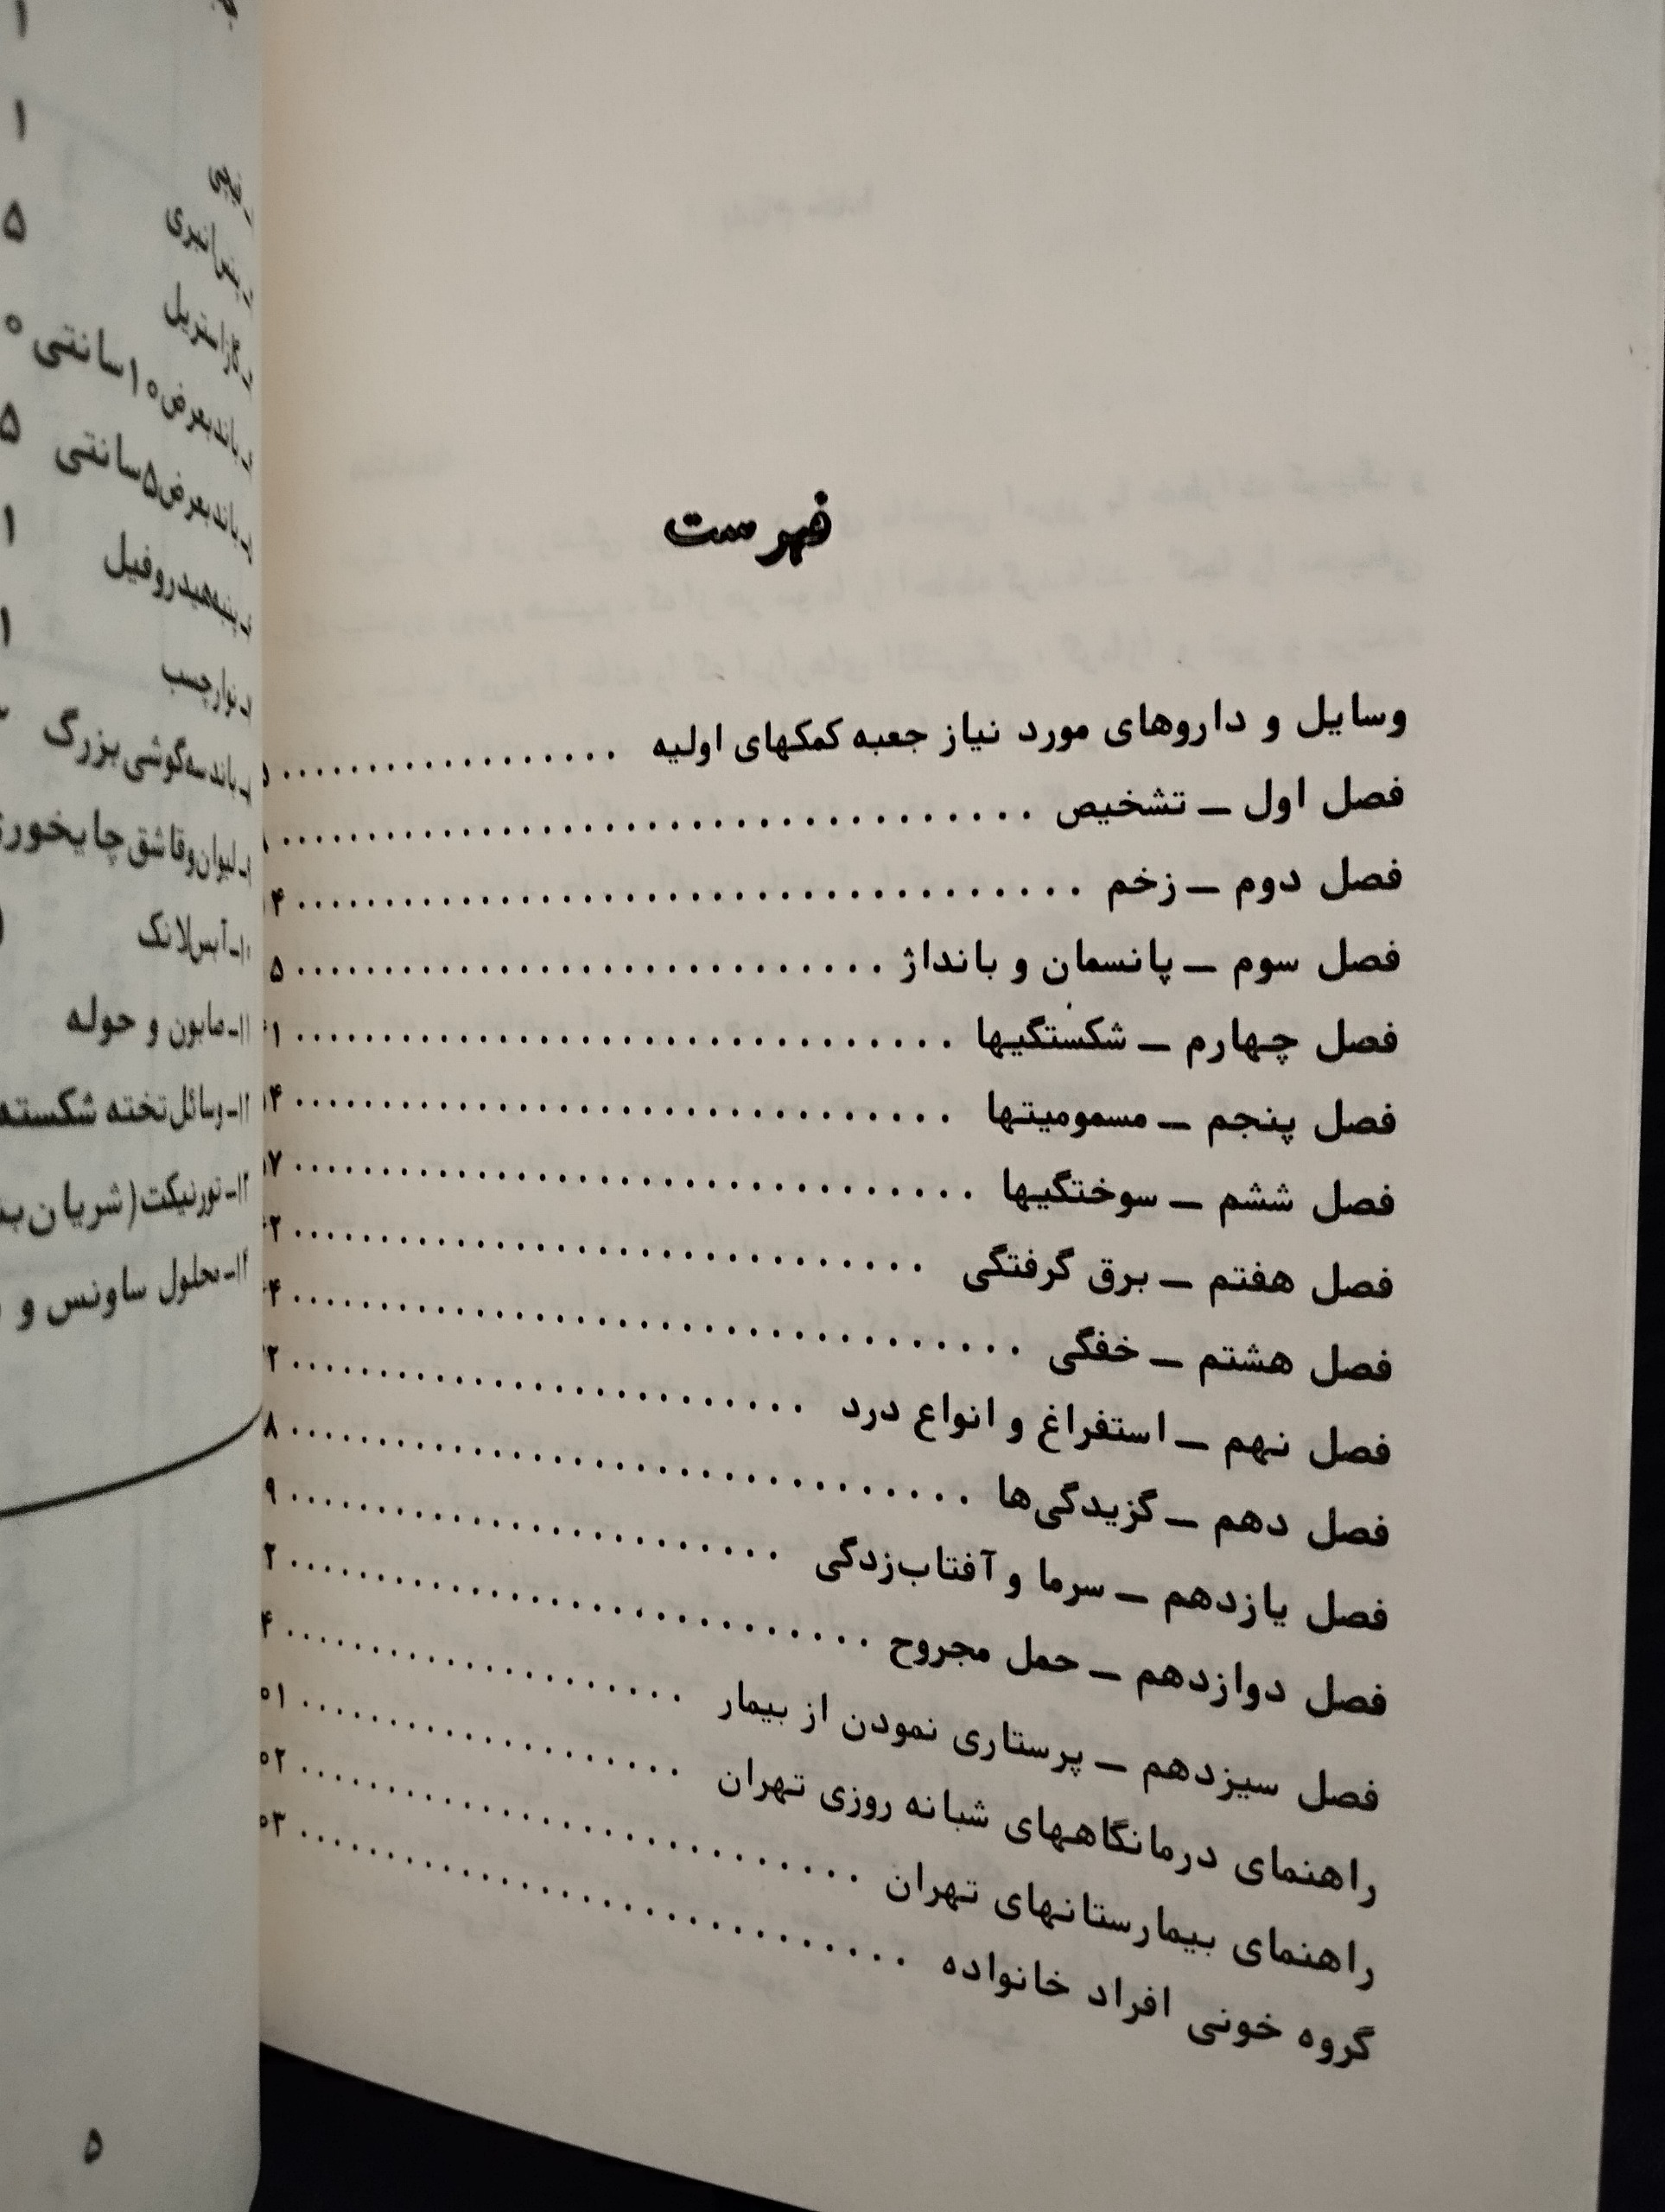 فهرست
وسایل و داروهای مورد نیاز جعبه کمکهای اولیه ..................
فصل اول ــ تشخیص ..................
فصل دوم ــ زخم ..................
فصل سوم ــ پانسمان و بانداژ ..................
فصل چهارم ــ شکستگیها ..................
فصل پنجم ــ مسمومیتها ..................
فصل ششم ــ سوختگیها ..................
فصل هفتم ــ برق گرفتگی ..................
فصل هشتم ــ خفگی ..................
فصل نهم ــ استفراغ و انواع درد ..................
فصل دهم ــ گزیدگی‌ها ..................
فصل یازدهم ــ سرما و آفتاب‌زدگی ..................
فصل دوازدهم ــ حمل مجروح ..................
فصل سیزدهم ــ پرستاری نمودن از بیمار ..................
راهنمای درمانگاههای شبانه روزی تهران ..................
راهنمای بیمارستانهای تهران ..................
گروه خونی افراد خانواده ..................
۱
۱
قیچی
۵
گازاستریل
باندبعرض۱۰سانتی
باندبعرض۵سانتی ۵
پنبه‌هیدروفیل ۱
نوارچسب ۱
باندسه‌گوشی‌بزرگ
لیوان‌وقاشق‌چایخوری
آبسلانگ
صابون و حوله
وسائل‌تخته شکسته
تورنیکت(شریان
محلول ساونس و
۵